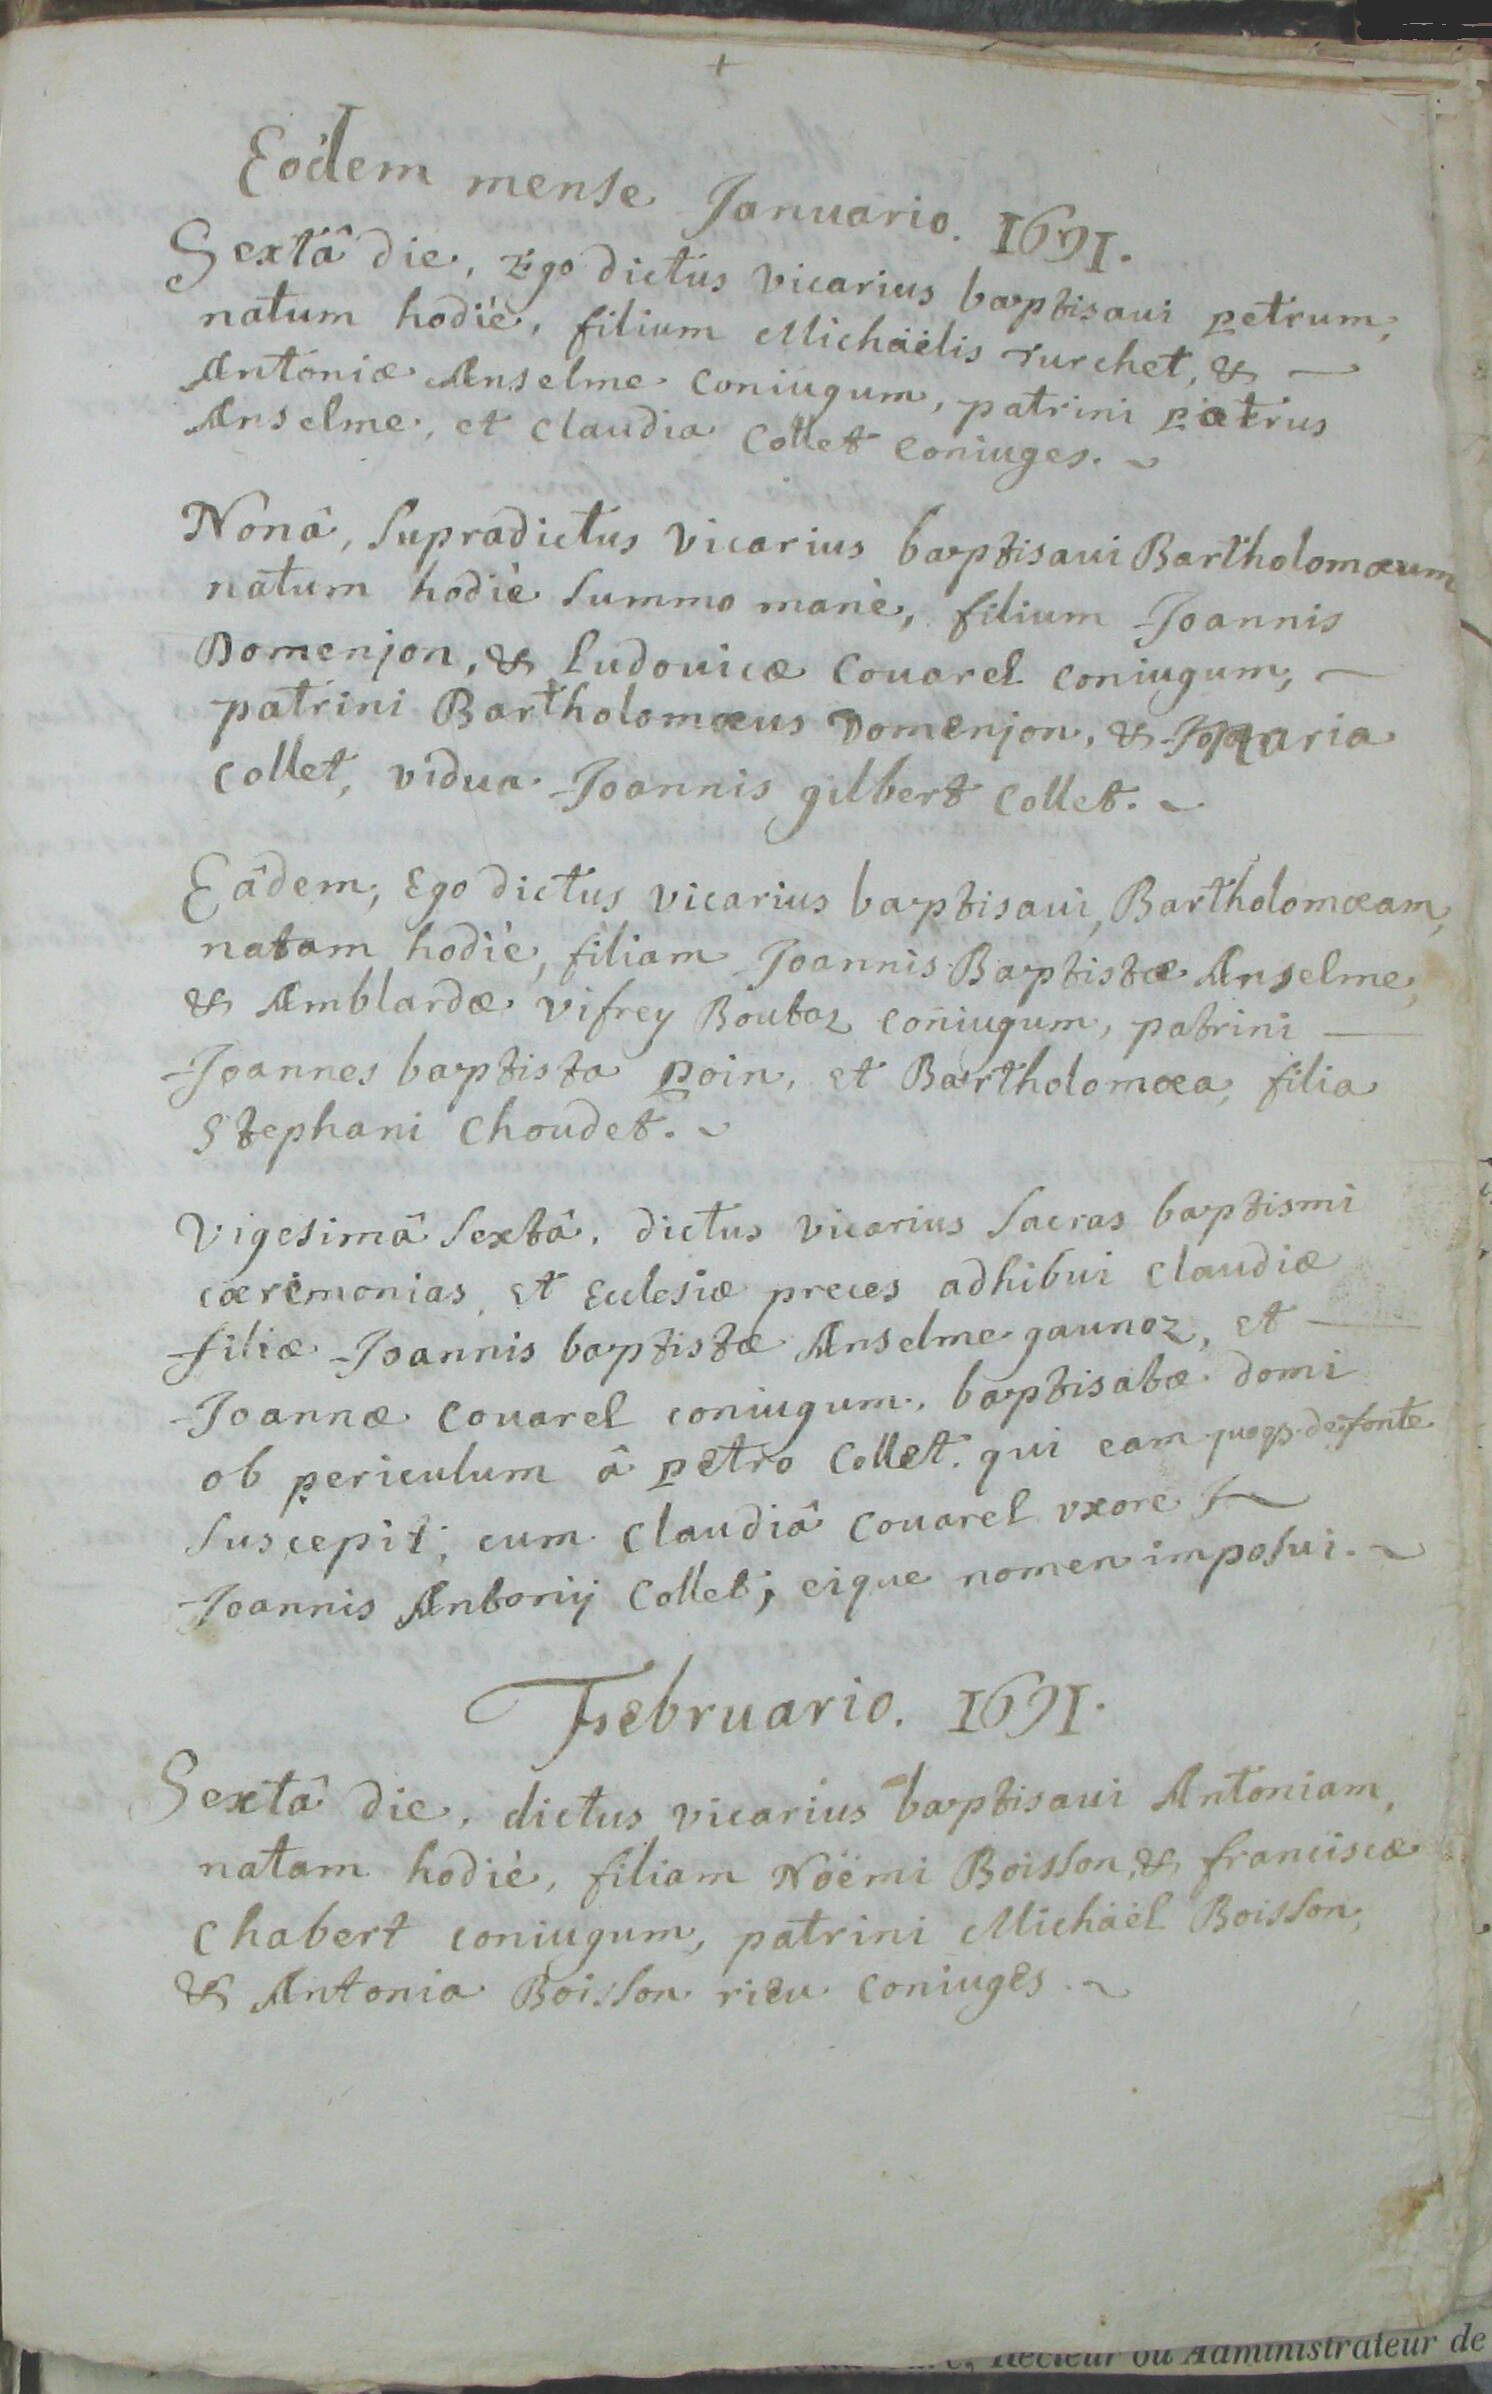 +
Eodem mense Januario. 1691.
Sextâ die, Ego dictus vicarius baptisaui petrum,
natum hodiè, filium Michaëlis rurchet, & —
Antoniæ Anselme coniugum, patrini petrus
Anselme, et claudia collet coniuges. ~
Nonâ, supradictus vicarius baptisaui Bartholomæum
natum hodiè summo manè, filium Joannis
Domenjon, & ludouicæ couarel coniugum, —
patrini Bartholomæus Domenjon, & Maria
collet, vidua Joannis gilbert collet. ~
Eâdem, Ego dictus vicarius baptisaui, Bartholomæam,
natam hodiè, filiam Joannis Baptistæ Anselme,
& Amblardæ vifrey Boutaz coniugum, patrini —
Joannes baptista poin, et Bartholomæa, filia
Stephani choudet. ~
Vigesimâ sextâ, dictus vicarius sacras baptismi
cæremonias, et Ecclesiæ preces adhibui claudiæ
filiæ Joannis baptistæ Anselme gaunoz, et —
Joannæ couarel coniugum, baptisatæ domi
ob periculum â petro collet, qui eam de fonte
suscepit, cum claudiâ couarel vxore
Joannis Antonij collet; eique nomen imposui. ~
Februario. 1691.
Sextâ die, dictus vicarius baptisaui Antoniam,
natam hodiè, filiam Nöëmi Boisson, & franciscæ
chabert coniugum, patrini Michaël Boisson,
& Antonia Boisson rieu coniuges. ~
Recteur ou Administrateur de